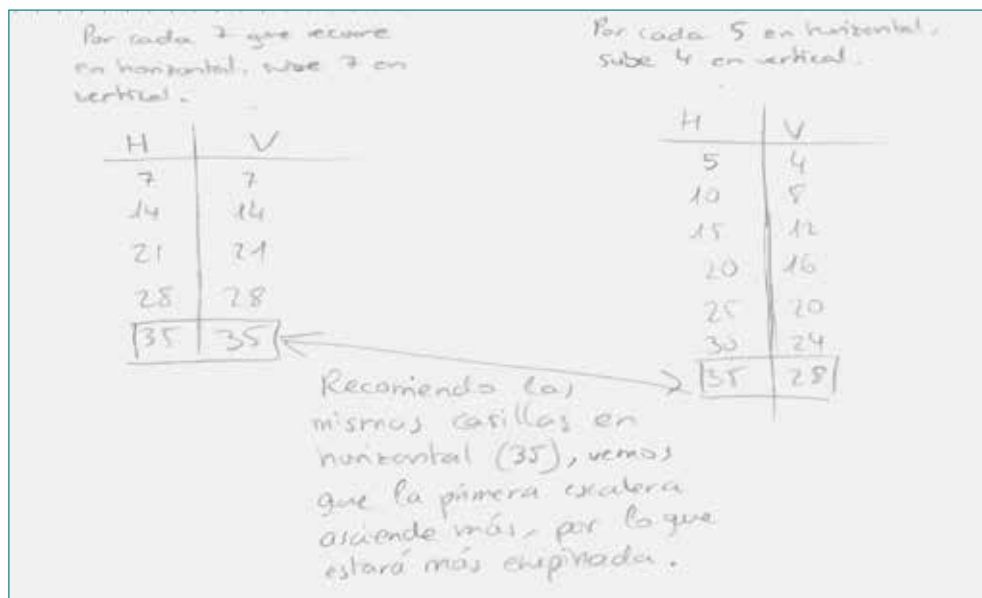 Por cada 7 que recorre
en horizontal, sube 7 en
vertical.
H V
7 7
14 14
21 21
28 28
35 35
Por cada 5 en horizontal,
sube 4 en vertical.
H V
5 4
10 8
15 12
20 16
25 20
30 24
35 28
Recorriendo las
mismas casillas en
horizontal (35), vemos
que la primera escalera
asciende más, por lo que
estará más empinada.